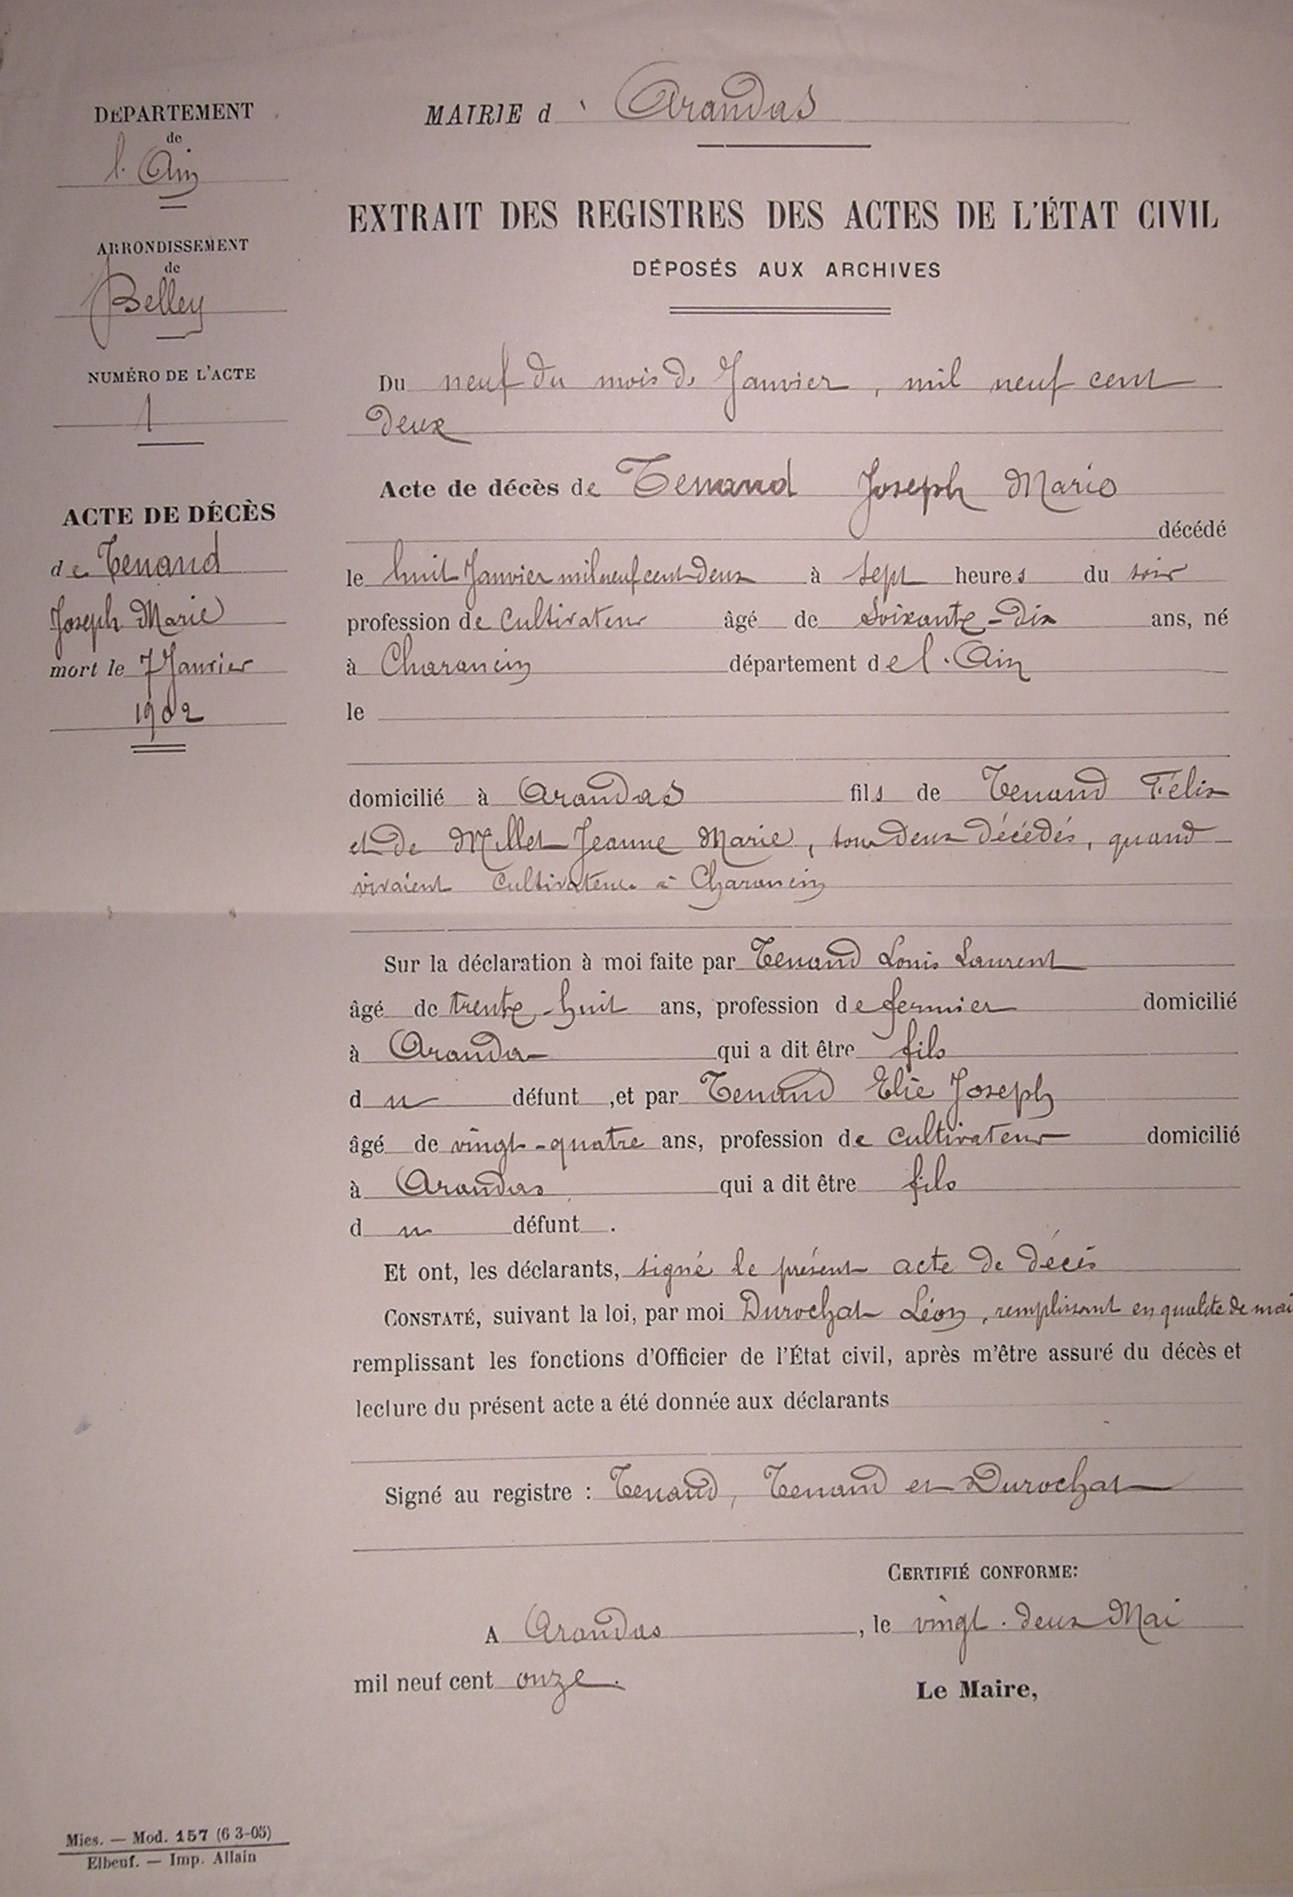 DÉPARTEMENT
de
l'Ain
ARRONDISSEMENT
de
Belley
NUMÉRO DE L'ACTE
1
ACTE DE DÉCÈS
de Tenand
Joseph Marie
mort le 7 Janvier
1902
MAIRIE d' Arandas
EXTRAIT DES REGISTRES DES ACTES DE L'ÉTAT CIVIL
DÉPOSÉS AUX ARCHIVES
Du neuf du mois de Janvier, mil neuf cent
deux
Acte de décès de Tenand Joseph Marie
décédé
le huit Janvier mil neuf cent deux à sept heures du soir
profession de cultivateur âgé de soixante-dix ans, né
à Charancin département de l'Ain
le
domicilié à Arandas fils de Tenand Félix
et de Millet Jeanne Marie, tous deux décédés, quand
vivaient cultivateurs à Charancin
Sur la déclaration à moi faite par Tenand Louis Laurent
âgé de trente-huit ans, profession de fermier domicilié
à Arandas qui a dit être fils
du défunt, et par Tenand Elie Joseph
âgé de vingt-quatre ans, profession de cultivateur domicilié
à Arandas qui a dit être fils
du défunt.
Et ont, les déclarants, signé le présent acte de décès
CONSTATÉ, suivant la loi, par moi Durochat Léon, remplissant en qualité de mai
remplissant les fonctions d'Officier de l'État civil, après m'être assuré du décès et
lecture du présent acte a été donnée aux déclarants
Signé au registre : Tenand, Tenand et Durochat
CERTIFIÉ CONFORME:
A Arandas, le vingt-deux Mai
mil neuf cent onze.
Le Maire,
Mies. — Mod. 157 (6 3-05)
Elbeuf. — Imp. Allain